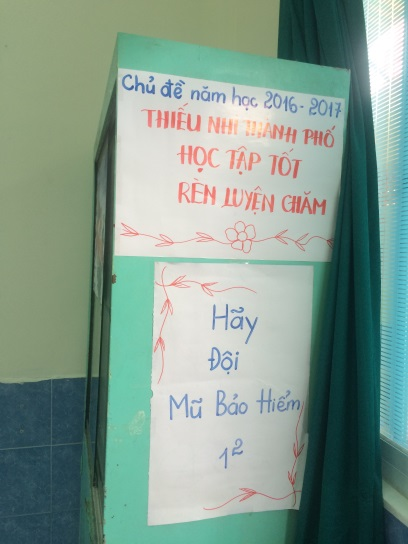 Chủ đề năm học 2016-2017
THIẾU NHI THÀNH PHỐ
HỌC TẬP TỐT
RÈN LUYỆN CHĂM
Hãy
Đội
Mũ Bảo Hiểm
1²